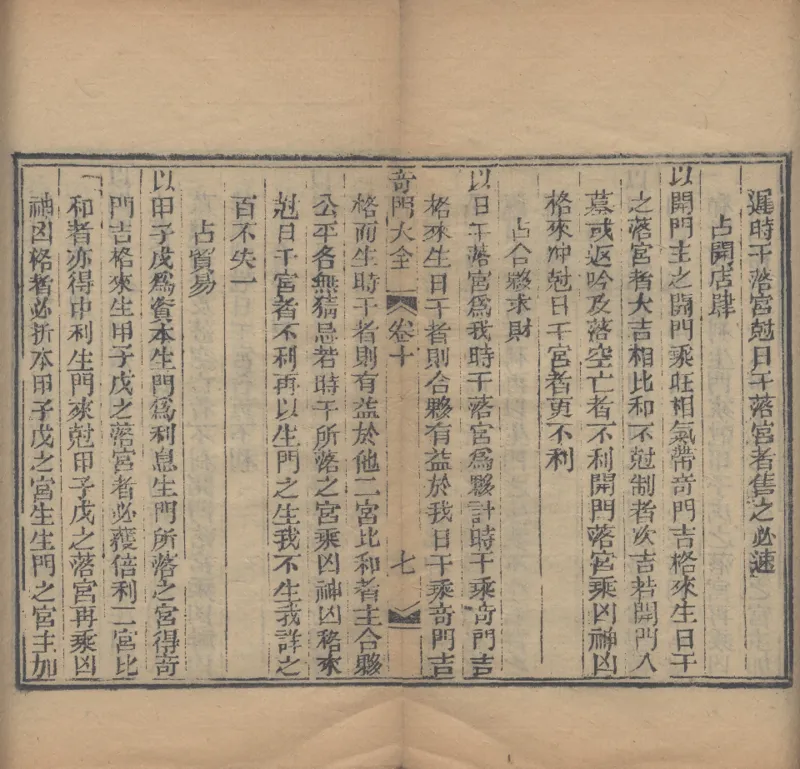 遲時干落宮尅日干落宮者售之必速
占開店肆
以開門主之開門乘旺相氣帶奇門吉格來生日干
之落宮者大吉相比和不尅制者次吉若開門入
墓或返吟及落空亡者不利開門落宮乘凶神凶
格來冲尅日干宮者更不利
占合夥求財
以日干落宮爲我時干落宮爲夥計時干乘奇門吉
格來生日干者則合夥有益於我日干乘奇門吉
奇門大全 卷十 七
格而生時干者則有益於他二宮比和者主合夥
公平各無猜忌若時干所落之宮乘凶神凶格來
尅日干宮者不利再以生門之生我不生我詳之
百不失一
占貿易
以甲子戊爲資本生門爲利息生門所落之宮得奇
門吉格來生甲子戊之落宮者必獲倍利二宮比
和者亦得中利生門來尅甲子戊之落宮再乘凶
神凶格者必折本甲子戊之宮生生門之宮主加